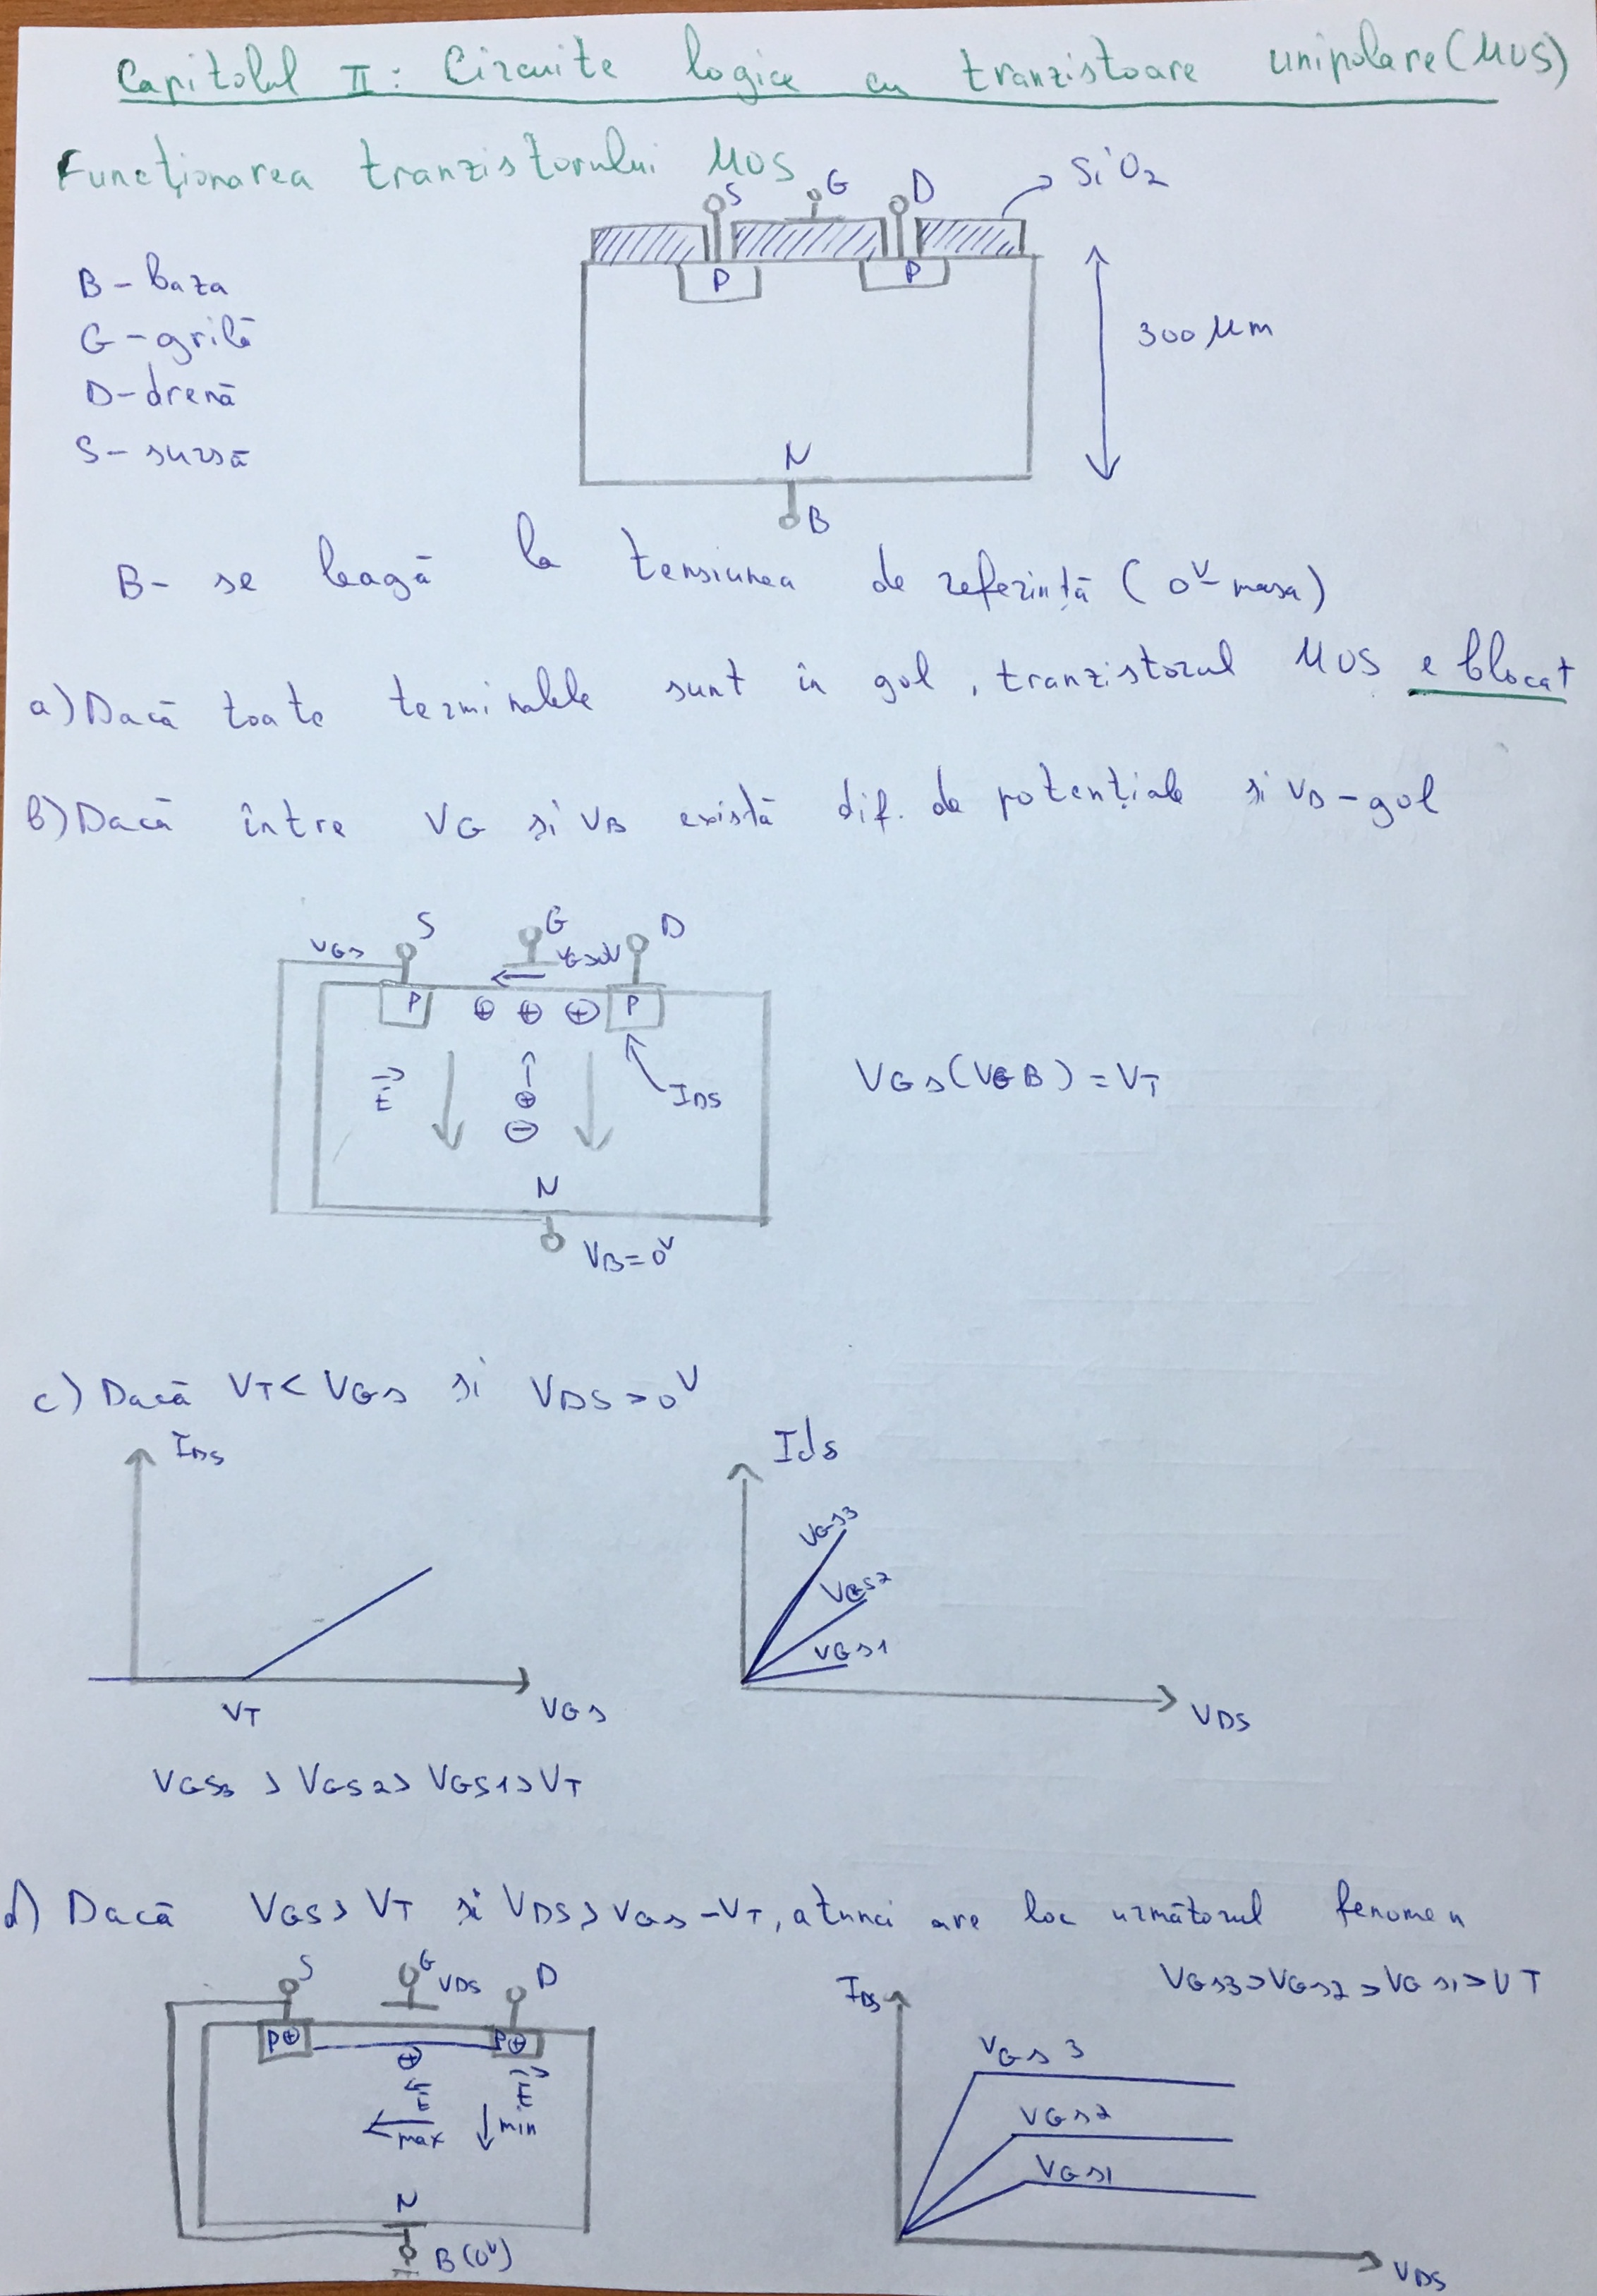 Capitolul II: Circuite logice cu tranzistoare unipolare (MOS)
Funcționarea tranzistorului MOS
S G D SiO2
B - baza
P P
G - grilă
300 μm
D - drenă
S - sursă
N
B
B - se leagă la tensiunea de referință (0V masa)
a) Dacă toate terminalele sunt în gol, tranzistorul MOS e blocat
b) Dacă între VG și VB există dif. de potențiale și VD - gol
S G D
VGS
P + + + P
E
+
IDS
-
VGS (VGB) = VT
N
VB = 0V
c) Dacă VT < VGS și VDS > 0V
IDS
Ids
VGS3
VGS2
VGS1
VT VGS
VDS
VGS3 > VGS2 > VGS1 > VT
d) Dacă VGS > VT și VDS > VGS - VT, atunci are loc următorul fenomen
S G VDS D
IDS
VGS3 > VGS2 > VGS1 > VT
P+ P+
+
E E
max min
VGS3
VGS2
VGS1
N
B (0V)
VDS